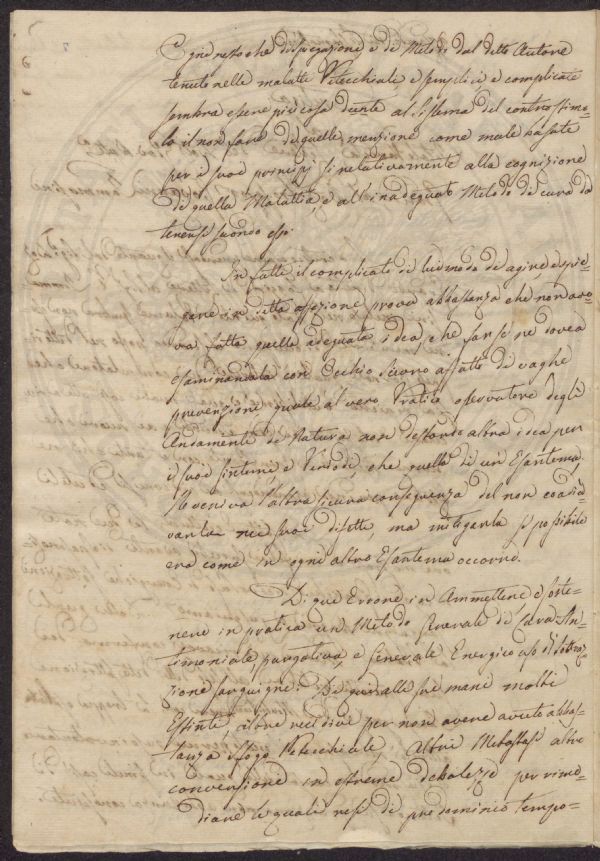 Ogni resto che di spiegazione e di Metodi dal detto Autore
tenuto nelle malatte Petecchiali, e semplici e complicate
sembra essere più cosa del Sistema del controstimo-
lo il non fare di quelle menzione come male basate
per i suoi principj sì relativamente alla cognizione
di quella Malattia, e all'inadeguato Metodo di cura da
tenersi secondo essi.
In fatti il complicato di lui modo di agire e spie-
gare in detta affezione prova abbastanza che non ave-
va fatta quella adeguata idea, che farsi ne dovea
esaminandola con Occhio scevro affatto di vaghe
prevenzioni quale al vero Pratico osservatore degli
Andamenti di Natura non destando altra idea per
i suoi sintomi, e Periodi, che quella di un Esantema,
Ne veniva l'altra sicura conseguenza del non
nei suoi difetti ma mitigarla se possibile
era come in ogni altro Esantema occorre.
Di qui Errore in Ammettere e soste-
nere in pratica un Metodo Generale di Cura An-
timoniale purgativa, e Generale Energico di sottra-
zione sanguigna. Di qui alle sue mani molti
Estinti, altre recidive per non avere avuto abbas-
tanza sfogo Petecchiale, Altri Metastasi altre
conversioni in estreme debolezze per rime-
diare le quali rese di predominio tempo-